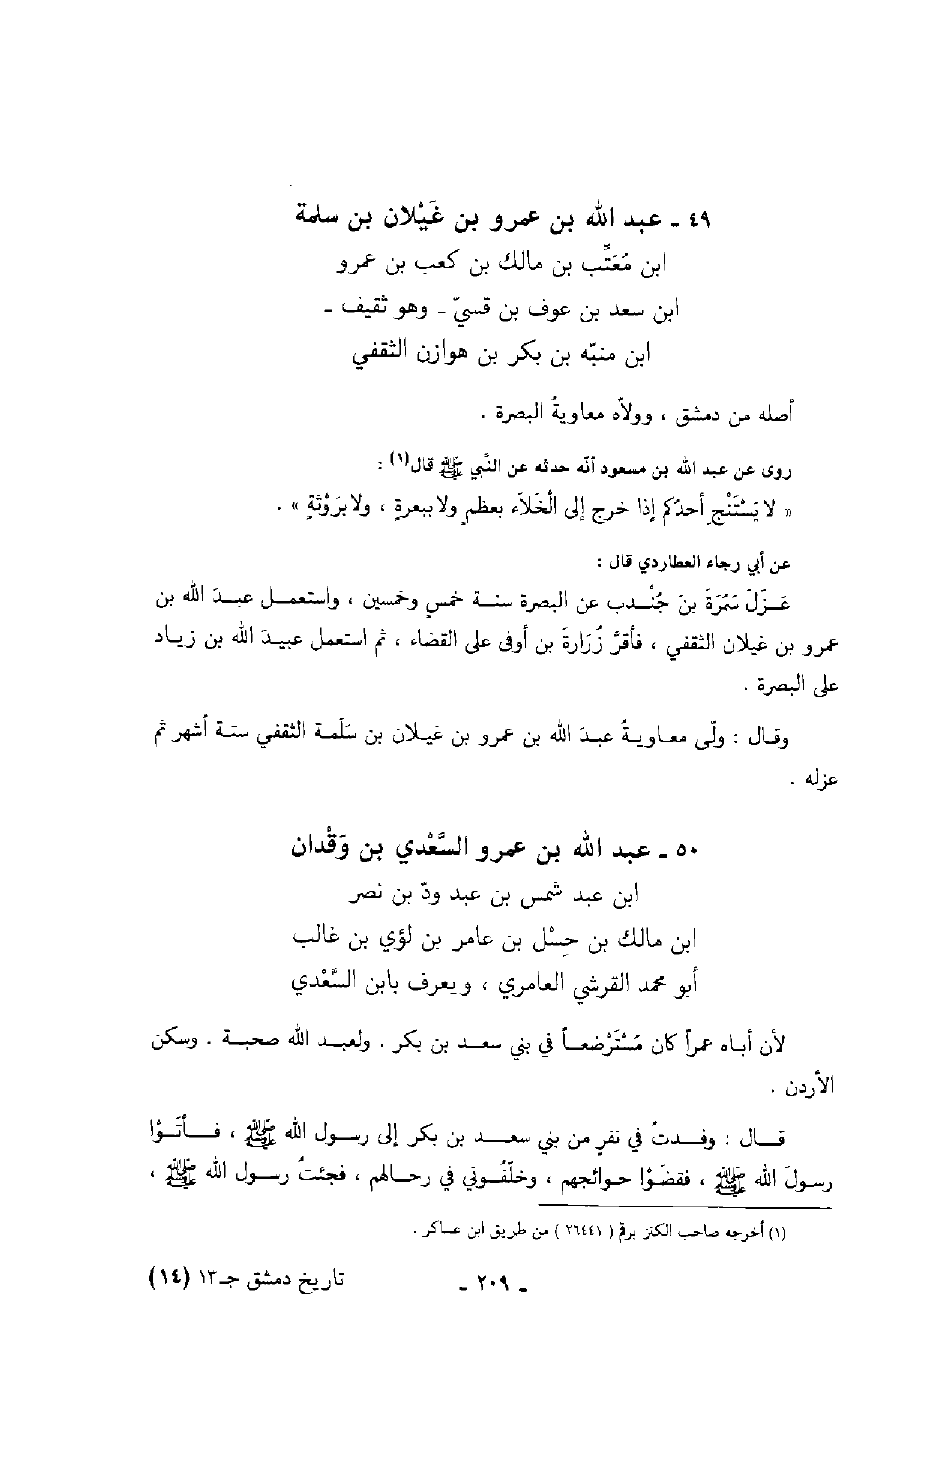 ٤٩ ـ عبد الله بن عمرو بن غَيْلان بن سلمة
ابن مُعَتِّب بن مالك بن كعب بن عمرو
ابن سعد بن عوف بن قسيّ ـ وهو ثقيف ـ
ابن منبّه بن بكر بن هوازن الثقفي
أصله من دمشق ، وولاّه معاويةُ البصرة .
روى عن عبد الله بن مسعود أنّه حدثه عن النَّبي ﷺ قال(١) :
« لا يَسْتَنْجِ أحدُكم إذا خرج إلى الْخَلاَء بعظمٍ ولا ببعرةٍ ، ولا بَرَوْثَةٍ » .
عن أبي رجاء العطاردي قال :
عَزَلَ سَمُرَةَ بن جُنْدب عن البصرة سنة خمسٍ وخمسين ، واستعمل عبدَ الله بن
عمرو بن غيلان الثقفي ، فأقرَّ زُرارةَ بن أوفى على القضاء ، ثم استعمل عبيدَ الله بن زياد
على البصرة .
وقال : ولّى معاويةُ عبدَ الله بن عمرو بن غيلان بن سَلَمة الثقفي ستة أشهر ثم
عزله .
٥٠ ـ عبد الله بن عمرو السَّعْدي بن وَقْدان
ابن عبد شمس بن عبد ودّ بن نصر
ابن مالك بن حِسْل بن عامر بن لؤي بن غالب
أبو محمد القرشي العامري ، ويعرف بابن السَّعْدي
لأن أباه عمراً كان مُسْتَرْضَعاً في بني سعد بن بكر . ولعبد الله صحبة . وسكن
الأردن .
قال : وفدتُ في نفرٍ من بني سعد بن بكر إلى رسول الله ﷺ ، فأتَوْا
رسولَ الله ﷺ ، فقضَوْا حوائجهم ، وخلَّفُوني في رحالهم ، فجئتُ رسول الله ﷺ ،
(١) أخرجه صاحب الكنز برقم ( ٢٦٤٤١ ) من طريق ابن عساكر .
ـ ٢٠٩ ـ
تاريخ دمشق جـ١٣ (١٤)